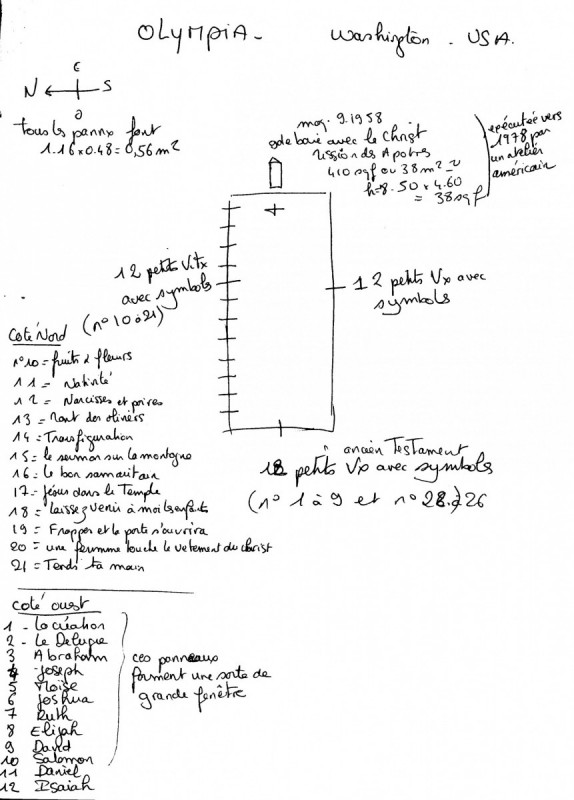 OLYMPIA - Washington - USA.
E
N S
O
tous les pannx font
1.16 x 0.48 = 0,56 m²
mag. 9.1958
gde baie avec le Christ
Mission des Apotres
410 sqf ou 38 m²
h = 8.50 x 4.60
= 38 sqf
exécutée vers
1978 par
un atelier
américain
12 petits Vitx
avec symbols
(n° 10 à 21)
12 petits Vx avec
symbols
ancien Testament
12 petits Vx avec symbols
(n° 1 à 9 et n° 26
Coté Nord
n° 10 = fruits & fleurs
11 = Nativité
12 = Narcisses et poires
13 = Mont des oliviers
14 = Transfiguration
15 = le sermon sur la montagne
16 = le bon samaritain
17 = Jésus dans le Temple
18 = laissez venir à moi les enfants
19 = Frapper et la porte s'ouvrira
20 = une femme touche le vetement du christ
21 = Tends ta main
coté ouest
1 - la création
2 - Le Deluge
3 Abraham
4 Joseph
5 Moïse
6 Joshua
7 Ruth
8 Elijah
9 David
10 Salomon
11 Daniel
12 Isaiah
ces panneaux
forment une sorte de
grande fenêtre